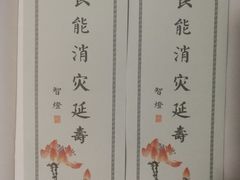 能消灾延壽
智燈
能消灾延壽
智燈